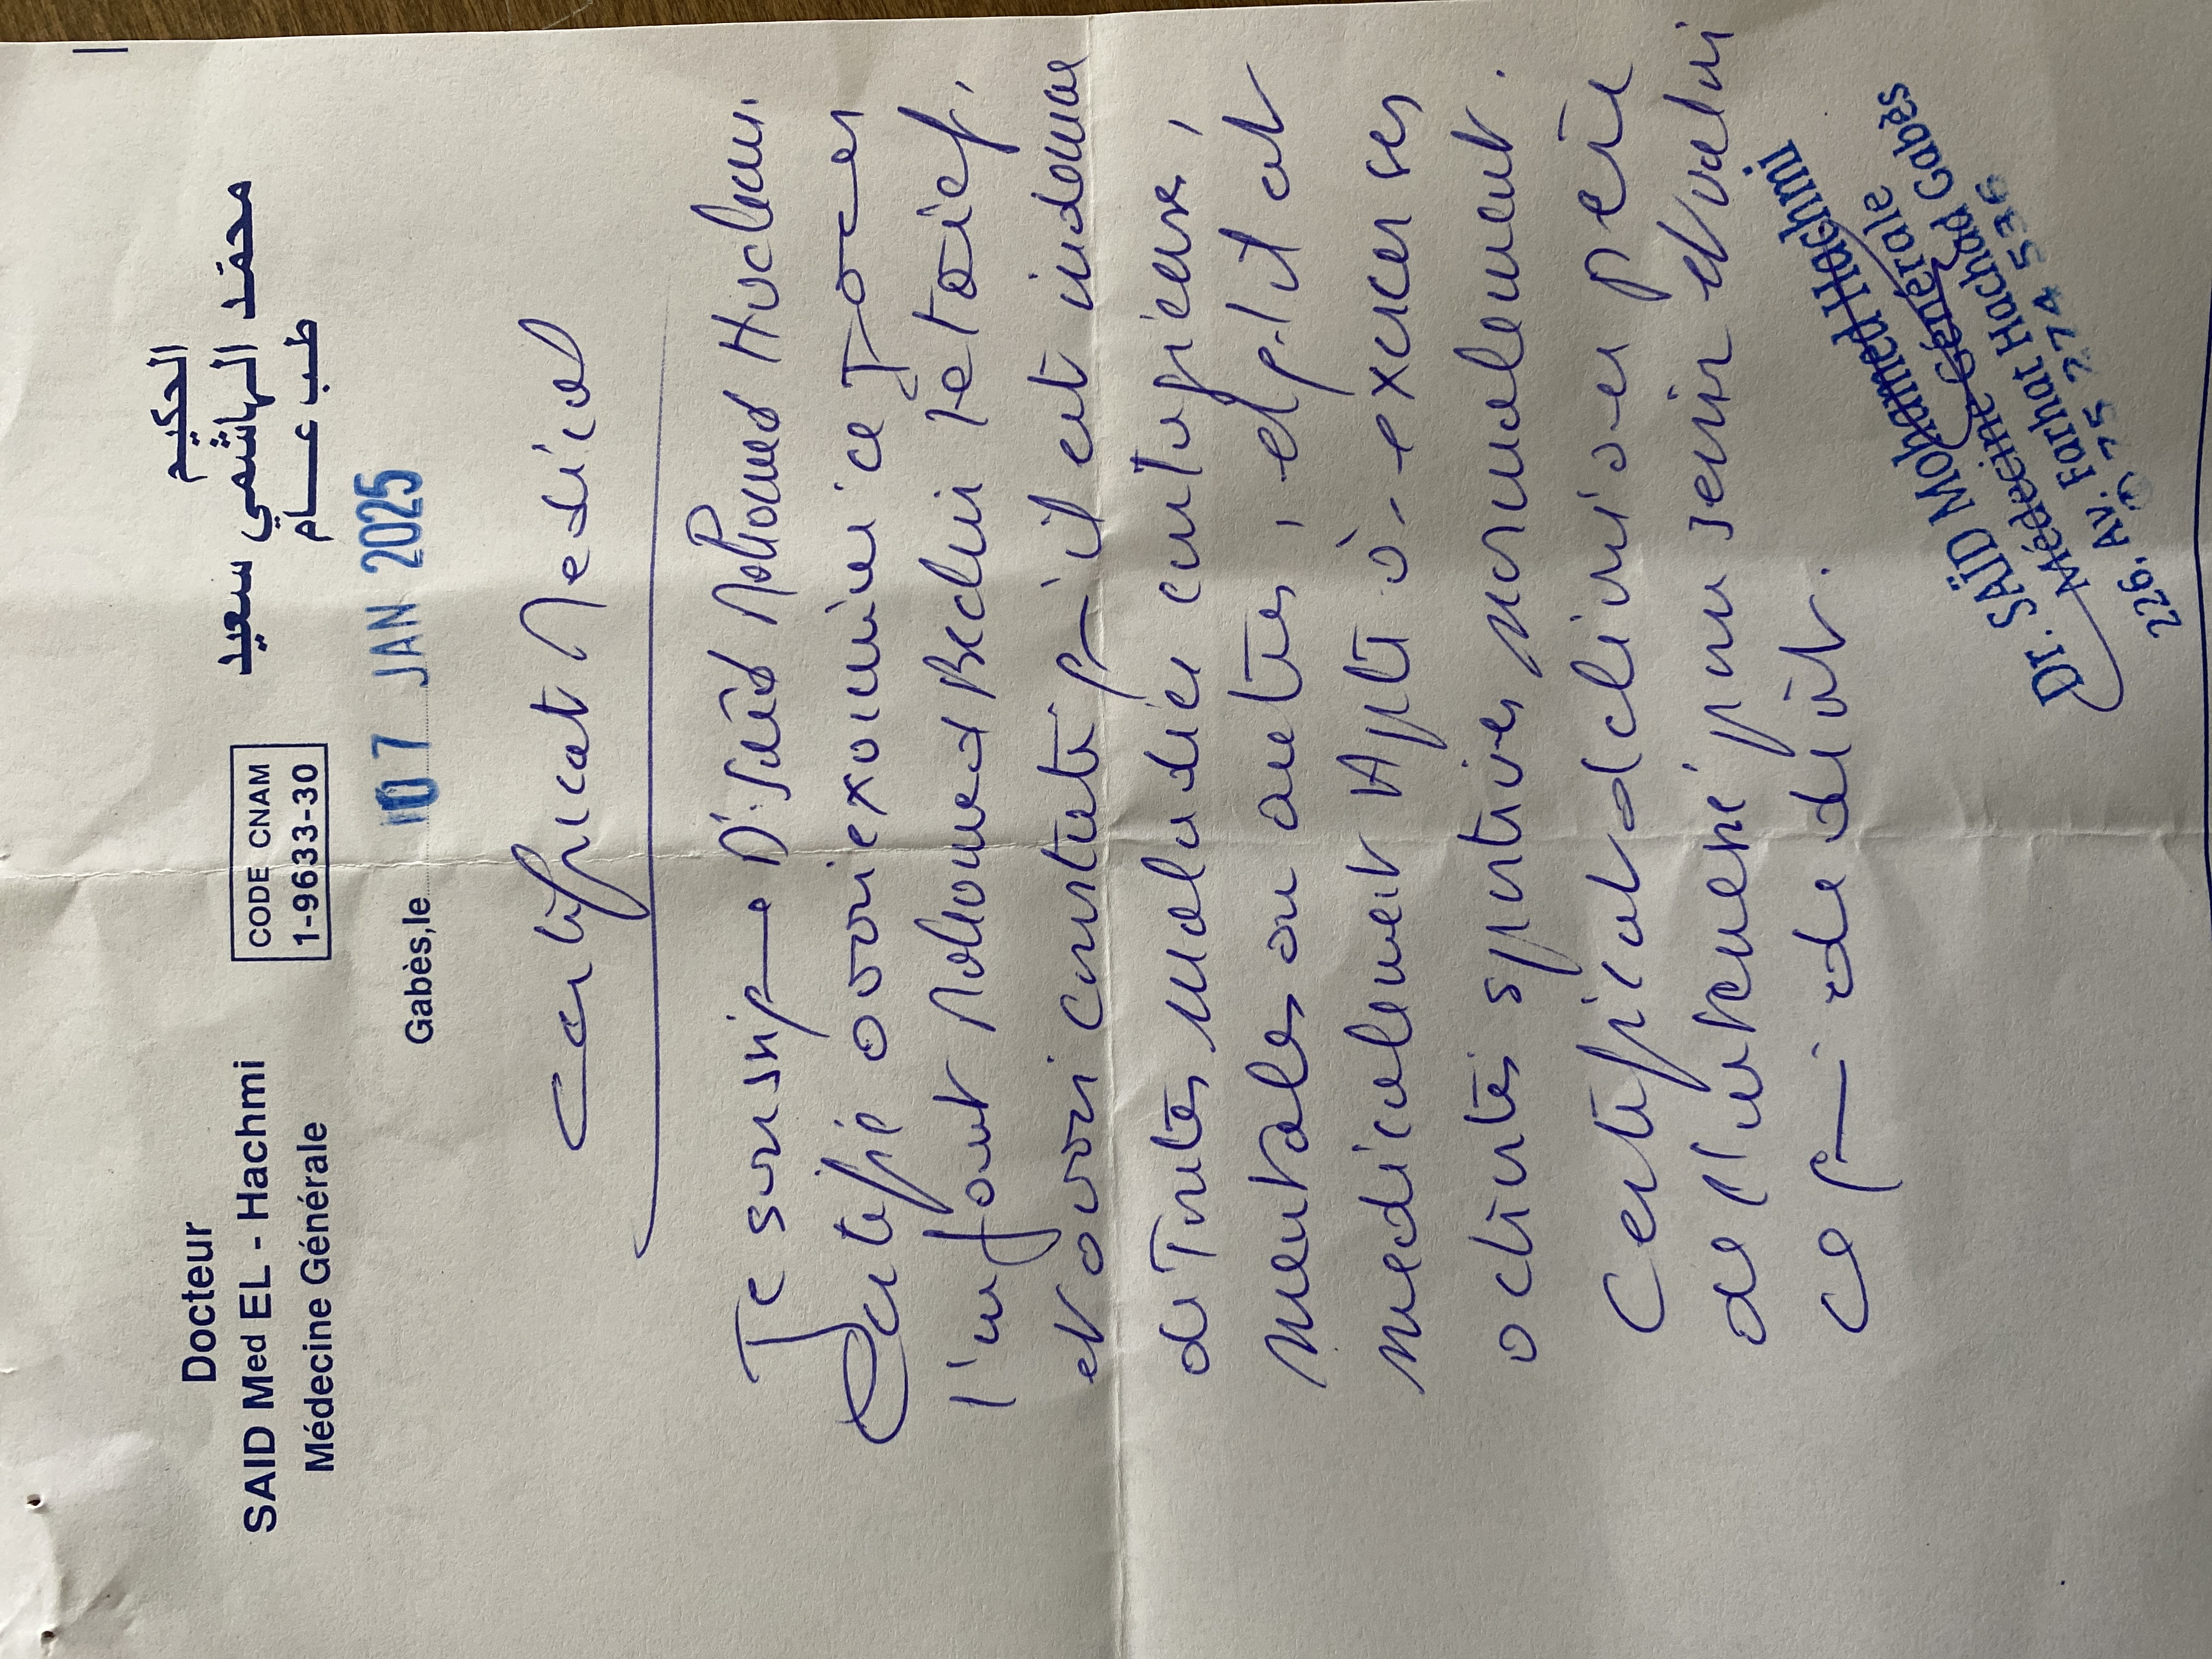 Docteur
SAID Med EL - Hachmi
Médecine Générale
CODE CNAM
1-9633-30
الحكيم
محمد الهاشمي سعيد
طب عام
Gabès, le 07 JAN 2025
Certificat Medical
Je soussigné Dr. Saïd Mohamed Hachmi
Certifie avoir examiné ce Jour
l'enfant Mohamed Bechir
et avoir constaté qu'il est indemne
de Toutes maladies contagieuse,
mentales ou autres, et qu'il est
medicalement Apte à exercer ses
activités sportives normalement.
Certificat delivré au père
de l'interessé pour servir et valoir
ce que de droit.
Dr. SAÏD Mohamed Hachmi
Médecine Générale
226, Av. Farhat Hachad Gabès
75 274 536